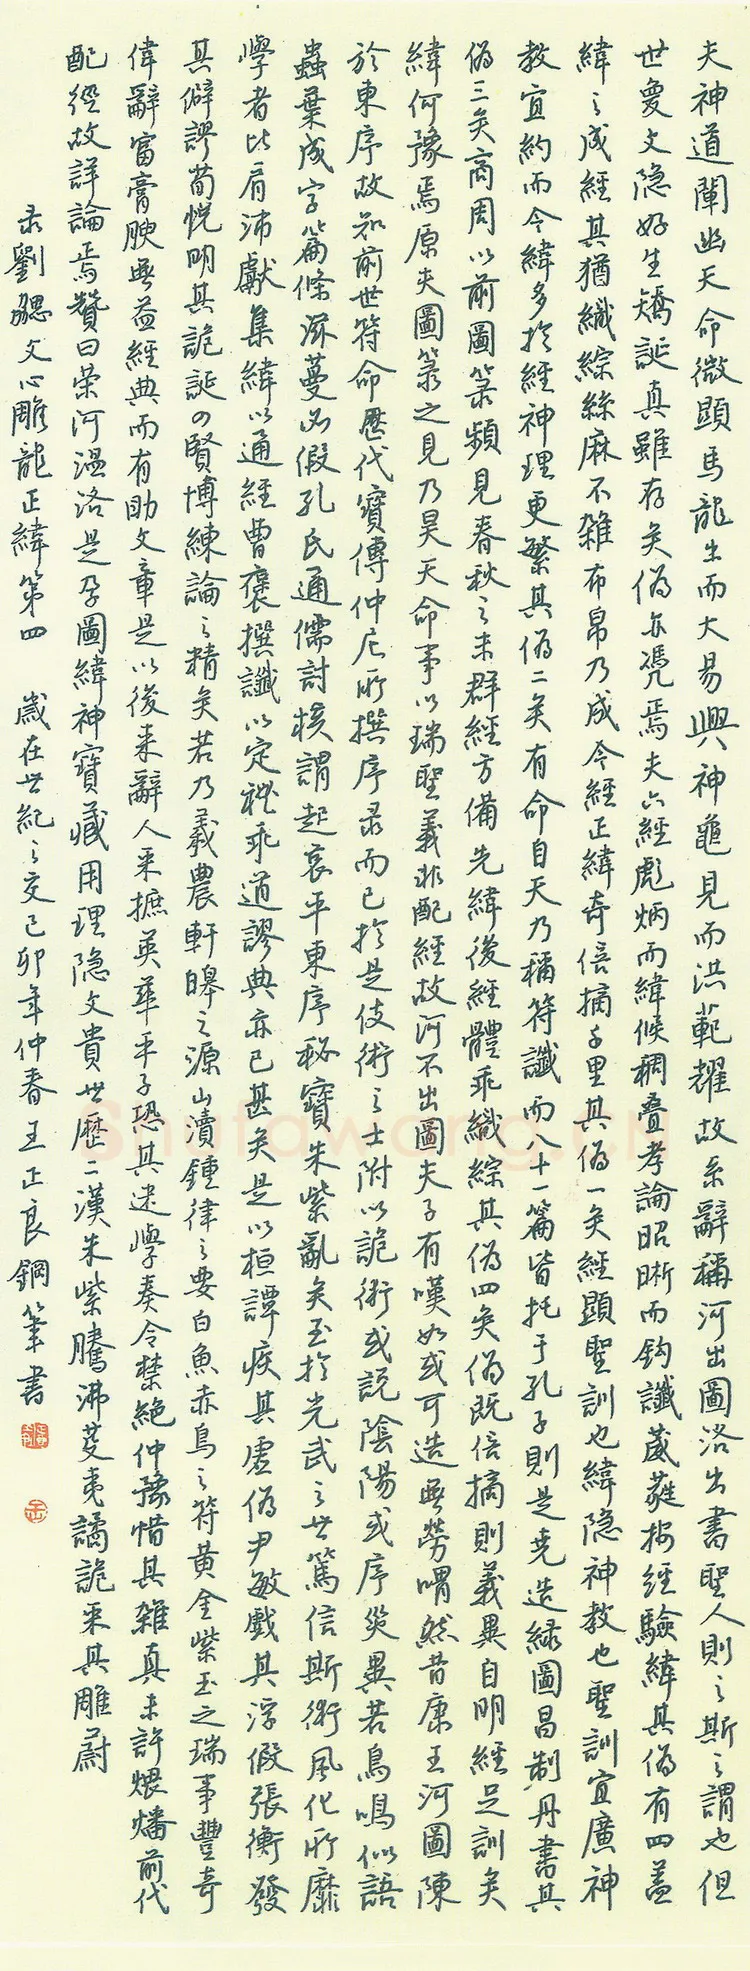 夫神道闡幽天命微顯馬龍出而大易興神龜見而洪範耀故系辭稱河出圖洛出書聖人則之斯之謂也但
世夐文隐好生矯誕真雖存矣偽亦憑焉夫六經彪炳而緯候稠叠孝論昭晰而鈎讖葳蕤按經驗緯其偽有四蓋
緯之成經其猶織綜絲麻不雜布帛乃成今經正緯奇倍摘千里其偽一矣經顯聖訓也緯隐神教也聖訓宜廣神
教宜約而今緯多於經神理更繁其偽二矣有命自天乃稱符讖而八十一篇皆托于孔子則是堯造緑圖昌制丹書其
偽三矣商周以前圖箓頻見春秋之末群經方備先緯後經體乖織綜其偽四矣偽既倍摘則義異自明經足訓矣
緯何豫焉原夫圖箓之見乃昊天命事以瑞聖義非配經故河不出圖夫子有嘆如或可造無勞喟然昔康王河圖陳
於東序故知前世符命歷代寶傳仲尼所撰序录而已於是伎術之士附以詭術或說陰陽或序災異若鳥鳴似語
蟲葉成字篇條滋蔓必假孔氏通儒討核謂起哀平東序秘寶朱紫亂矣至於光武之世篤信斯術風化所靡
學者比肩沛獻集緯以通經曹褒撰讖以定禮乖道謬典亦已甚矣是以桓譚疾其虛偽尹敏戲其浮假張衡發
其僻謬荀悅明其詭誕四賢博練論之精矣若乃羲農軒皞之源山瀆鍾律之要白魚赤鳥之符黄金紫玉之瑞事豐奇
偉辭富膏腴無益經典而有助文章是以後來辭人采摭英華平子恐其迷學奏令禁絶仲豫惜其雜真未許煨燔前代
配經故詳論焉贊曰榮河温洛是孕圖緯神寶藏用理隐文貴世歷二漢朱紫騰沸芟夷譎詭采其雕蔚
录劉勰文心雕龍正緯第四 歲在世紀之交己卯年仲春王正良鋼筆書
Shufawang.CN